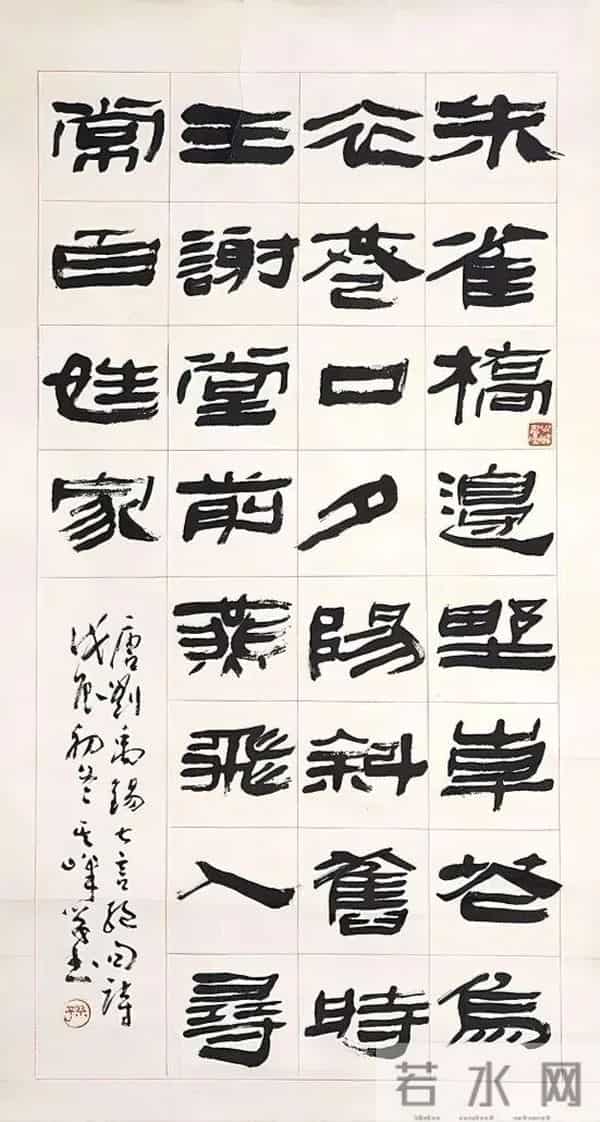 朱雀橋邊野草花烏
衣巷口夕陽斜舊時
王謝堂前燕飛入尋
常百姓家
唐劉禹錫七言絕句詩
初冬其峰書
若水网